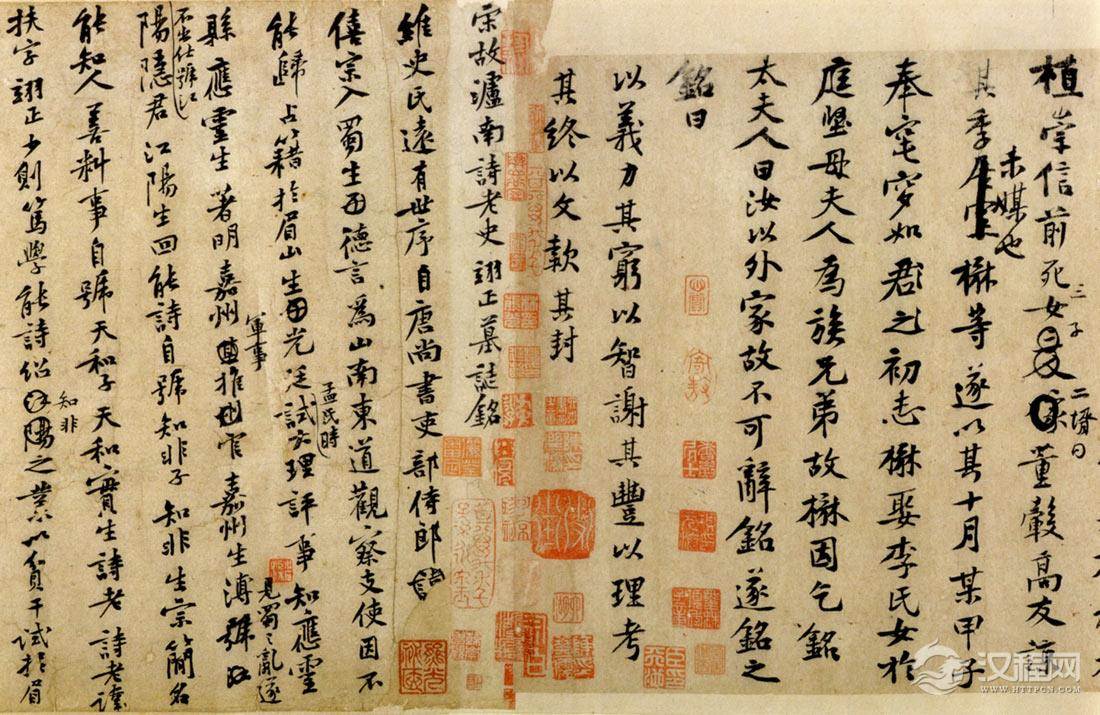 植崇信前死女三子二壻曰董毅高友諒
未媒也
其季楙等遂以其十月某甲子
奉窀穸如君之初志楙娶李氏女於
庭堅母夫人為族兄弟故楙因乞銘
太夫人曰汝以外家故不可辭銘遂銘之
銘曰
以義力其窮以智謝其豐以理考
其終以文款其封
宋故瀘南詩老史翊正墓誌銘
維史氏遠有世序自唐尚書吏部侍郎
僖宗入蜀生德言為山南東道觀察支使因不
能歸占籍於眉山生光廷孟氏時試大理評事知應靈
縣應靈生著明嘉州軍事推官嘉州生溥見蜀之亂遂
不出仕號江
陽隱君江陽生回能詩自號知非子知非生宗簡名
能知人善料事自號天和子天和實生詩老詩老諱
扶字翊正少則篤學能詩紹知非之業以貧干試於眉
汉程网
WWW.HTTPCN.COM